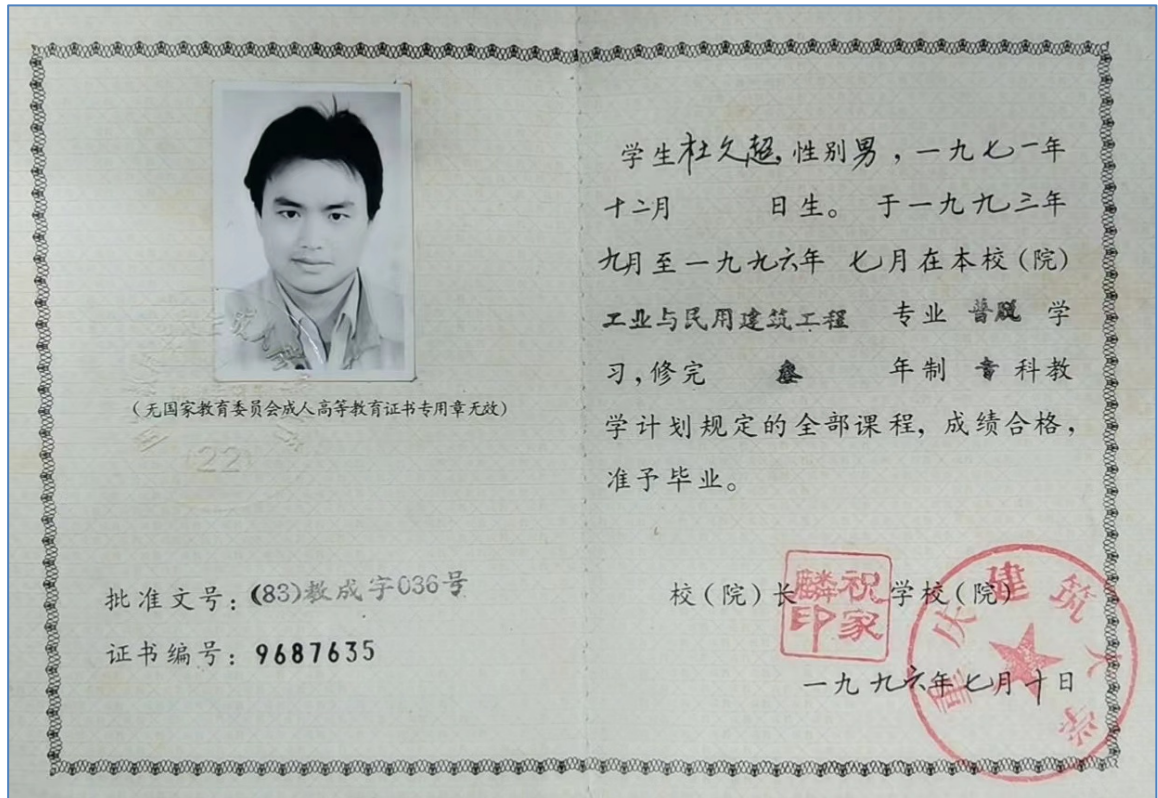 (无国家教育委员会成人高等教育证书专用章无效)
(22)
批准文号:(83)教成字036号
证书编号:9687635
学生杜久超,性别男,一九七一年
十二月 日生。于一九九三年
九月至一九九六年 七月在本校(院)
工业与民用建筑工程 专业 普脱 学
习,修完 叁 年制 专 科教
学计划规定的全部课程,成绩合格,
准予毕业。
校(院)长 学校(院)
祝家麟印
重庆建筑大学
一九九六年七月十日